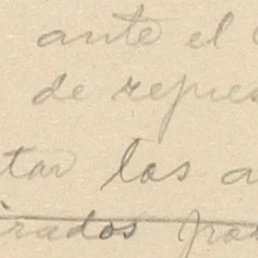 ante el
de repres
tar las a
irados par